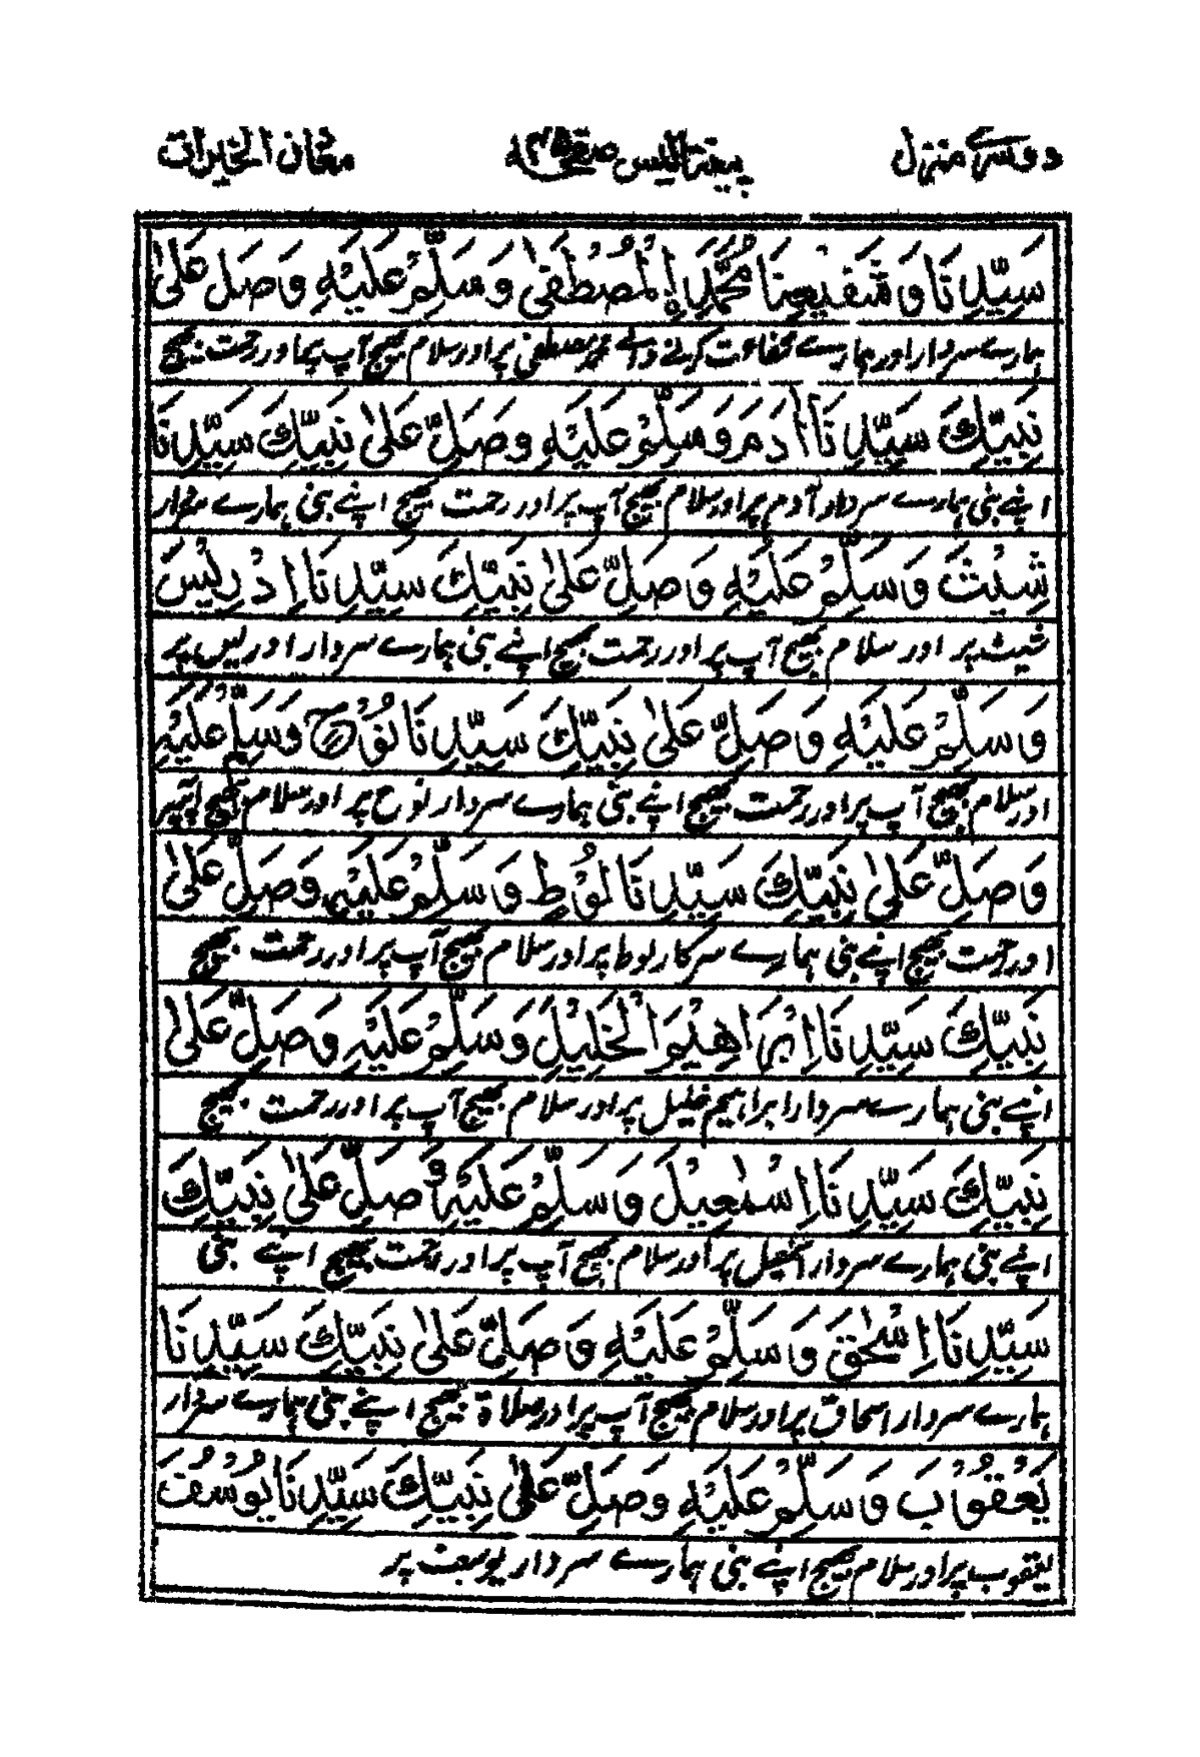 دوسرے منزل پینتالیس صفحہ ۴۵ مغان الخیرات
سَيِّدِنَا وَشَفِيعِنَا مُحَمَّدِ إِلْمُصْطَفٰى وَسَلِّمْ عَلَيْهِ وَصَلِ عَلىٰ
ہمارے سردار اور ہمارے شفاعت کرنے والے محمد مصطفیٰ پر اور سلام بھیج آپ پہ اور رحمت بھیج
نَبِيِّكَ سَيِّدِنَا اٰدَمَ وَسَلِّمْ عَلَيْهِ وَصَلِّ عَلىٰ نَبِيِّكَ سَيِّدِنَا
اپنے نبی ہمارے سردار آدم پر اور سلام بھیج آپ پر اور رحمت بھیج اپنے نبی ہمارے سردار
شِيْثَ وَسَلِّمْ عَلَيْهِ وَصَلِّ عَلىٰ نَبِيِّكَ سَيِّدِنَا اِدْرِيْسَ
شیث پر اور سلام بھیج آپ پر اور رحمت بھیج اپنے نبی ہمارے سردار ادریس پر
وَسَلِّمْ عَلَيْهِ وَصَلِّ عَلىٰ نَبِيِّكَ سَيِّدِنَا نُوْحٍ وَسَلِّمْ عَلَيْهِ
اور سلام بھیج آپ پر اور رحمت بھیج اپنے نبی ہمارے سردار نوح پر اور سلام بھیج آپ پر
وَصَلِّ عَلىٰ نَبِيِّكَ سَيِّدِنَا لُوْطٍ وَسَلِّمْ عَلَيْهِ وَصَلِّ عَلىٰ
اور رحمت بھیج اپنے نبی ہمارے سرکار لوط پر اور سلام بھیج آپ پر اور رحمت بھیج
نَبِيِّكَ سَيِّدِنَا اِبْرَاهِيْمَ الْخَلِيْلَ وَسَلِّمْ عَلَيْهِ وَصَلِّ عَلىٰ
اپنے نبی ہمارے سردار ابراہیم خلیل پر اور سلام بھیج آپ پر اور رحمت بھیج
نَبِيِّكَ سَيِّدِنَا اِسْمٰعِيْلَ وَسَلِّمْ عَلَيْهِ وَصَلِّ عَلىٰ نَبِيِّكَ
اپنے نبی ہمارے سردار اسمٰعیل پر اور سلام بھیج آپ پر اور رحمت بھیج اپنے نبی
سَيِّدِنَا اِسْحٰقَ وَسَلِّمْ عَلَيْهِ وَصَلِّ عَلىٰ نَبِيِّكَ سَيِّدِنَا
ہمارے سردار اسحاق پر اور سلام بھیج آپ پر اور صلاۃ بھیج اپنے نبی ہمارے سردار
يَعْقُوْبَ وَسَلِّمْ عَلَيْهِ وَصَلِّ عَلىٰ نَبِيِّكَ سَيِّدِنَا يُوْسُفَ
یعقوب پر اور سلام بھیج اپنے نبی ہمارے سردار یوسف پر